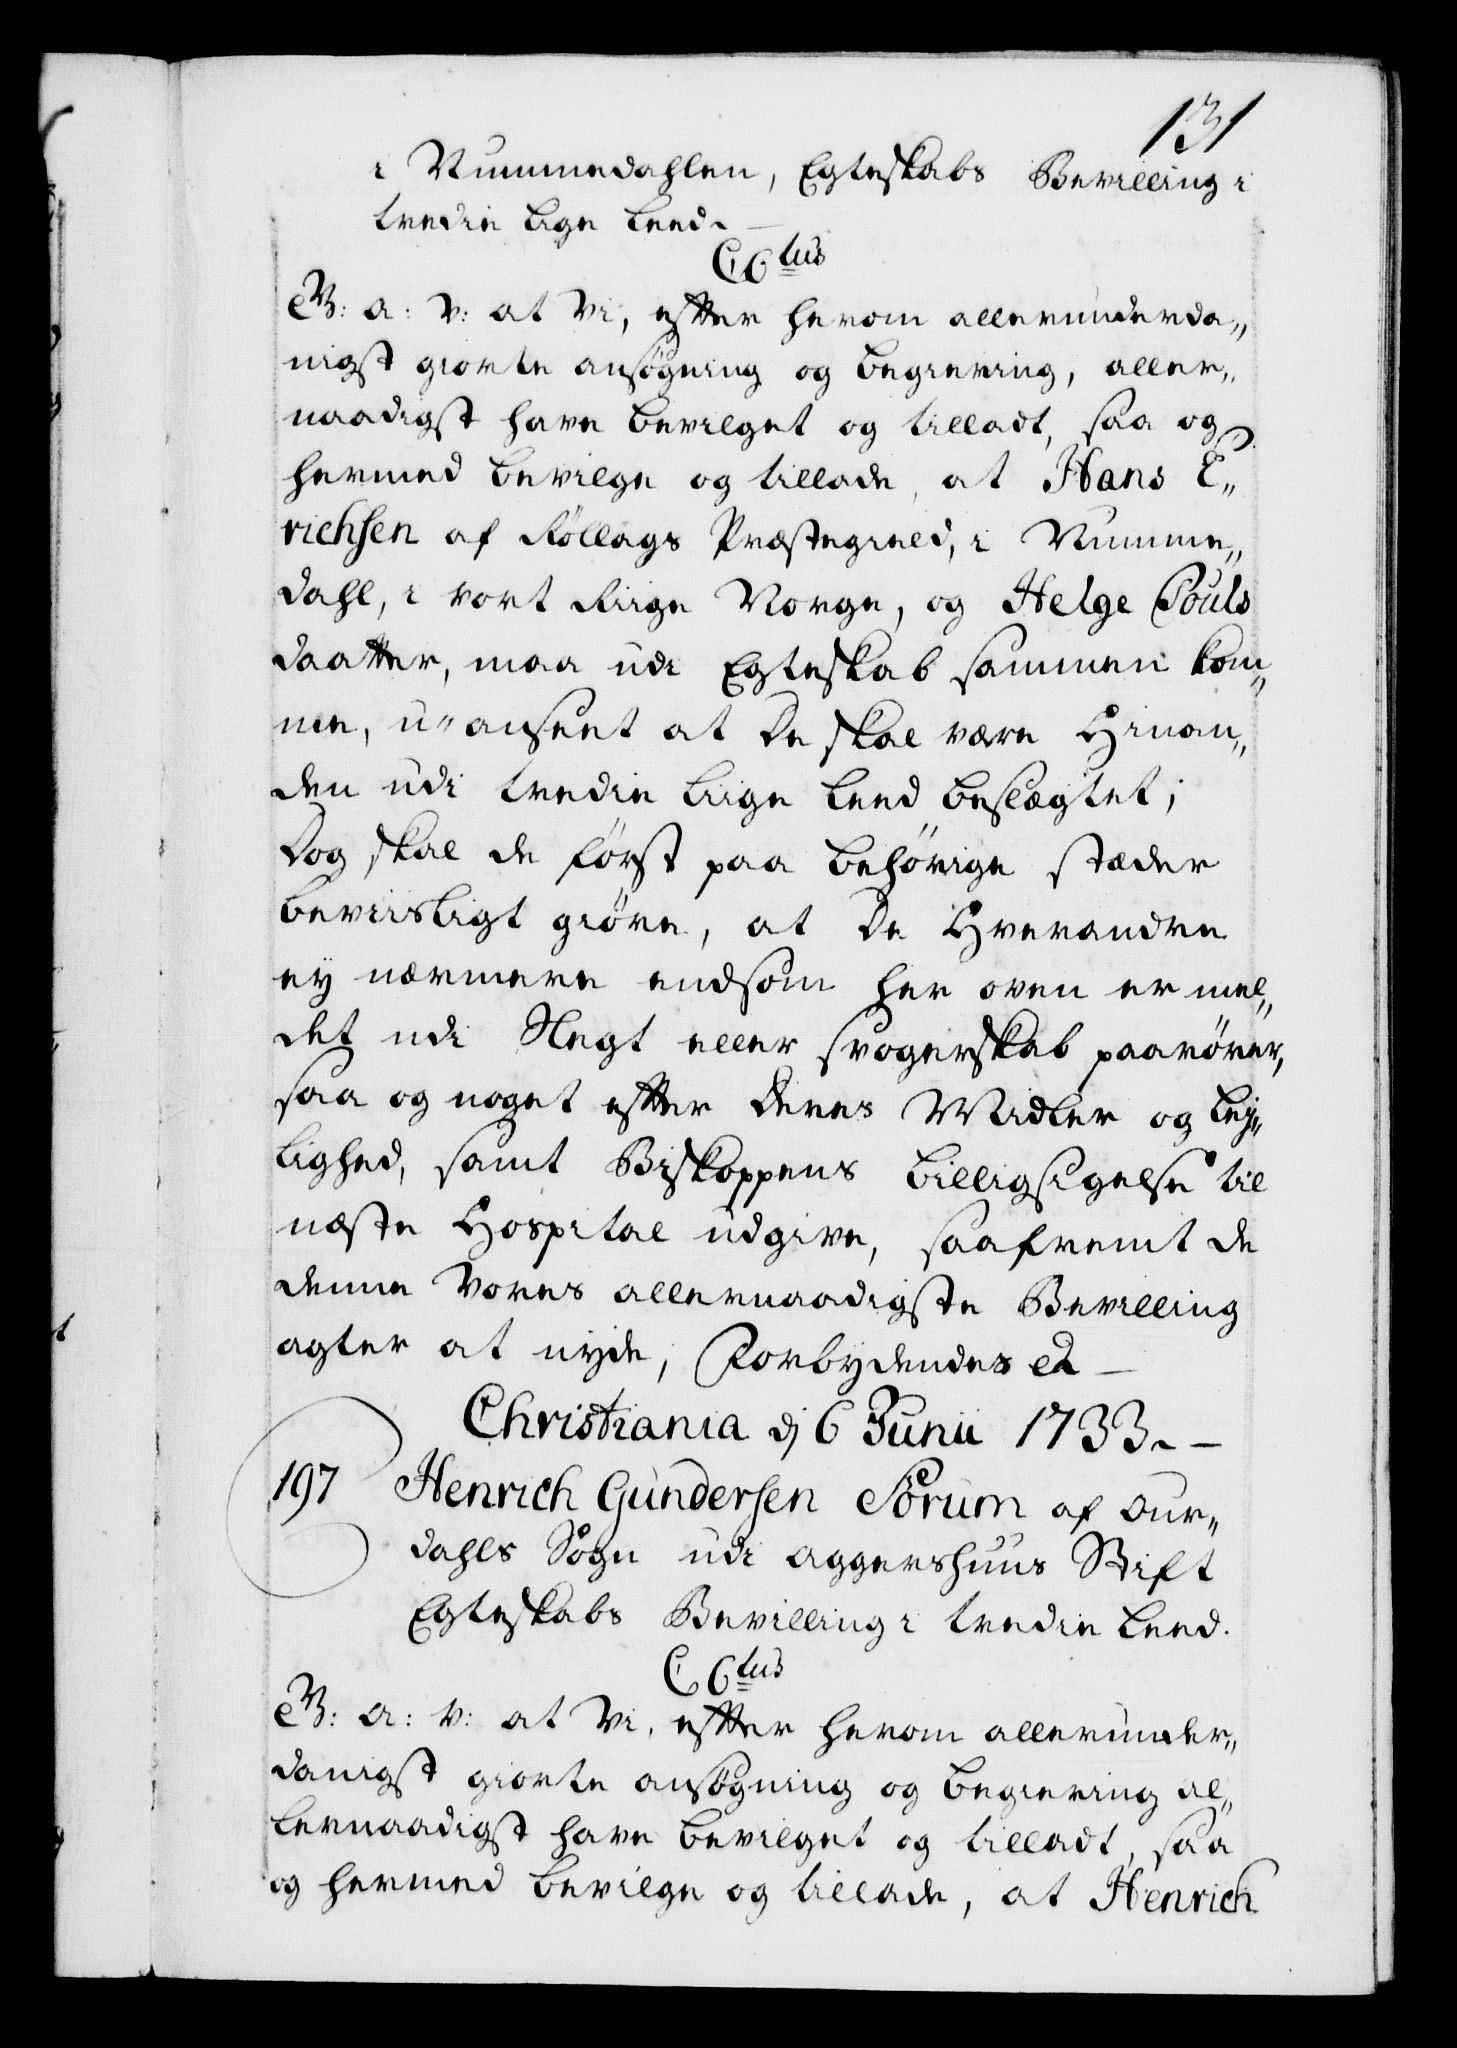 131
i Nummedahlen, Egteskabs Bevilling i
tredie lige Leed.
C 6tus
G: a: V: at Vi, efter herom allerunderda„
nigst giorte ansøgning og begiering, aller„
naadigst have bevilget og tilladt, saa og
hermed bevilge og tillade, at Hans E„
richsen af Rollags Præstegield, i Numme„
dahl, i vort Riige Norge, og Helge Pouls
daatter, maa udi Egteskab sammen kom„
me, u„anseet at De skal være Hinan„
den udi tredie Liige Leed beslægtet;
Dog skal de først paa behørige stæder
beviisligt giøre, at De Hverandre
ey nærmere endsom her oven er mel„
det udi Slegt eller svogerskab paarører,
saa og noget efter deres Midler og Ley„
lighed, samt Biskoppens billigsigelse til
næste Hospital udgive, saafremt de
denne Vores allernaadigste Bevilling
agter at nyde, Forbydendes et
Christiania dj 6 Junii 1733.
197 Henrich Gundersen Sørum af Our„
dahls Sogn udi Aggershuus Stift
Egteskabs Bevilling i tredie Leed.
C 6tus
G: a: V: at Vi, efter herom allerunder„
danigst giorte ansøgning og begiering al„
lernaadigst have bevilget og tilladt, saa
og hermed bevilge og tillade, at Henrich